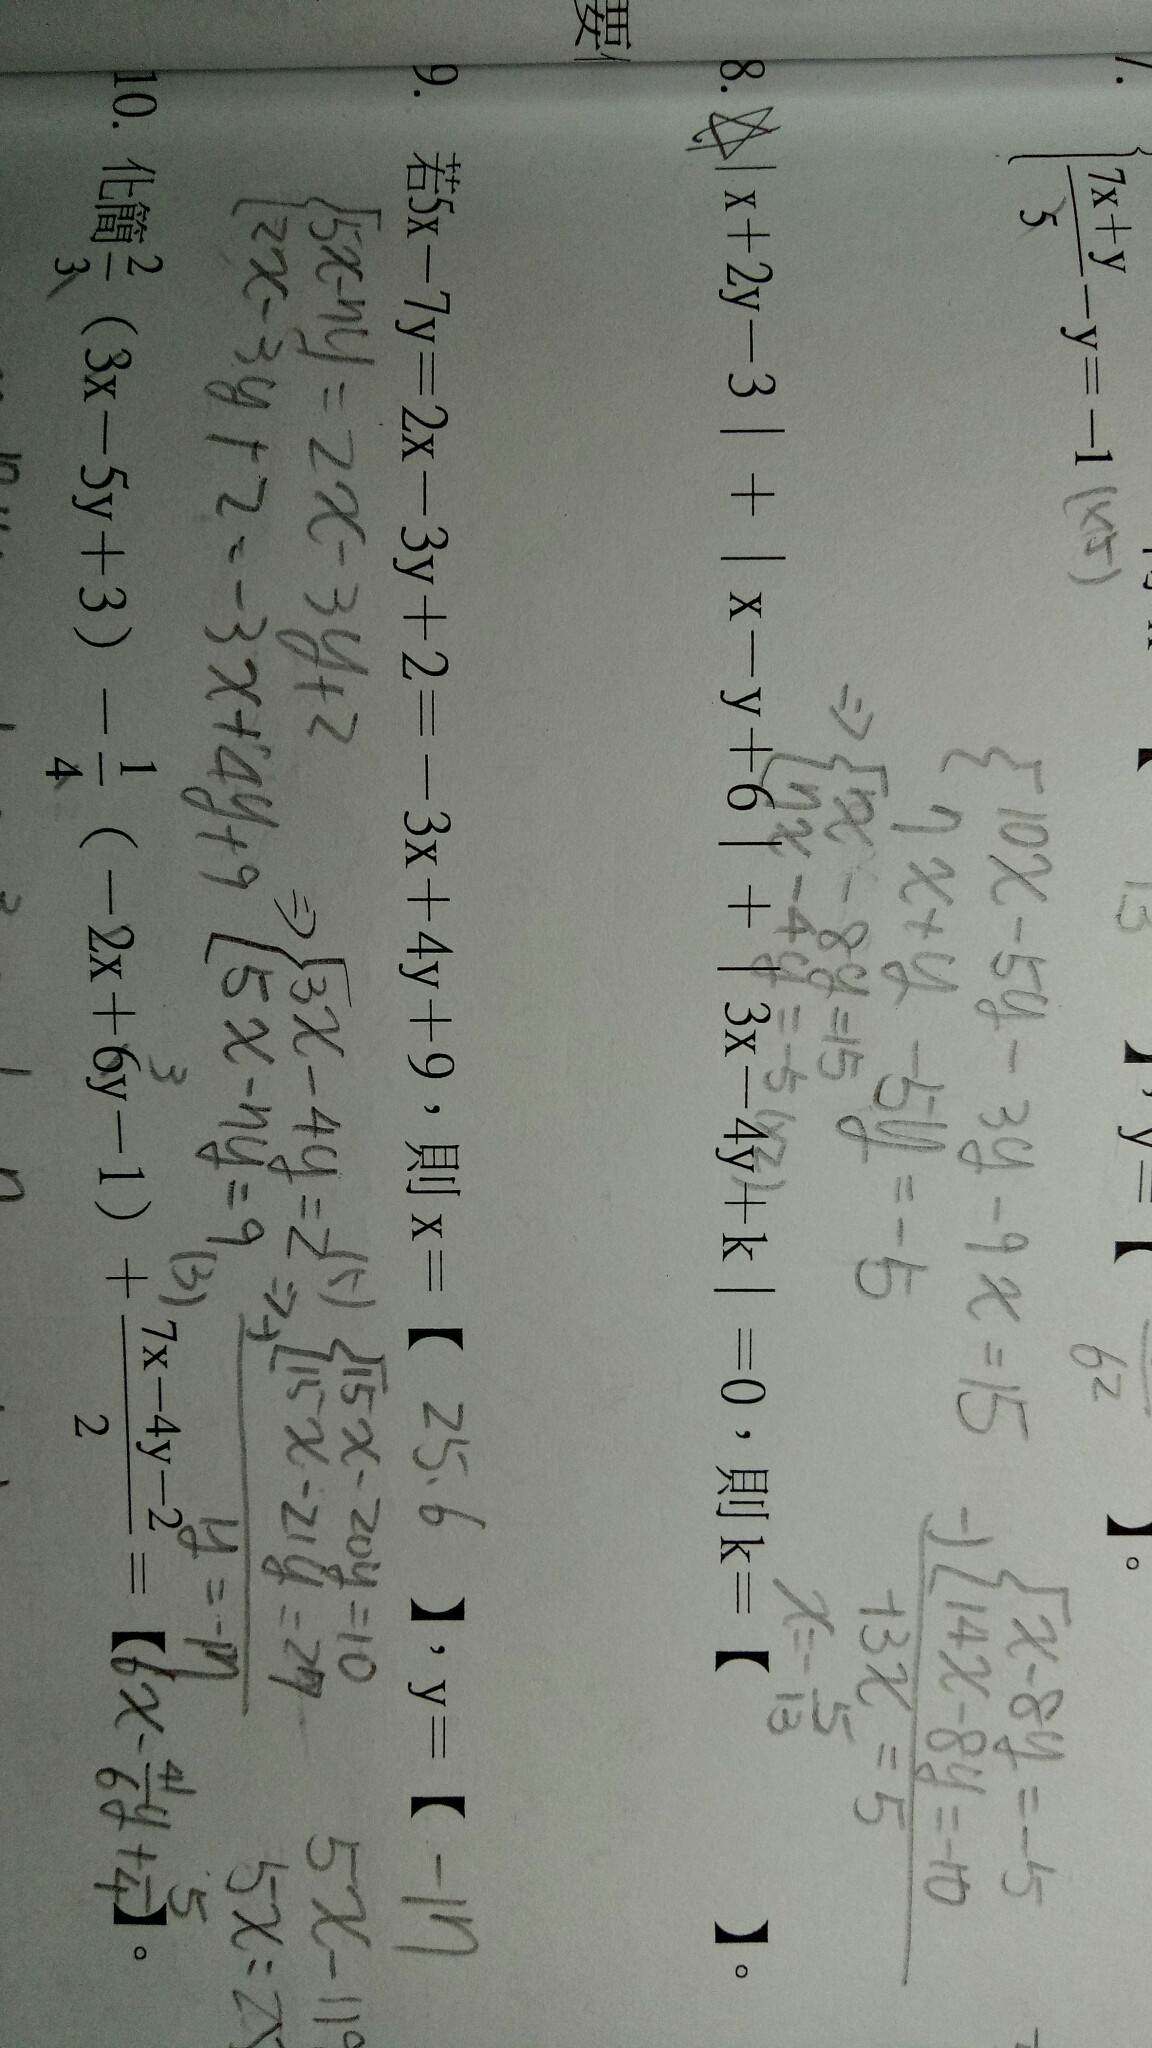 要
7.
7x+y
5
-y=-1(x5)
】,y=【
62
】。
{10x-5y-3y-9x=15
7x+y-5y=-5
⇒{x-8y=15
7x-4y=-5(x2)
{x-8y=-5
-)14x-8y=-10
13x=5
x=-5/13
8. |x+2y-3|+|x-y+6|+|3x-4y+k|=0,則k=【 】。
9. 若5x-7y=2x-3y+2=-3x+4y+9,則x=【 25.6 】,y=【 -17
{5x-7y=2x-3y+2
2x-3y+2=-3x+4y+9
⇒{3x-4y=2
5x-7y=9(3)
⇒{15x-20y=10
15x-21y=27
y=-17
5x-119
10. 化簡2/3(3x-5y+3)-1/4(-2x+6y-1)+7x-4y-2/2=【6x-41/6y+5/4】。